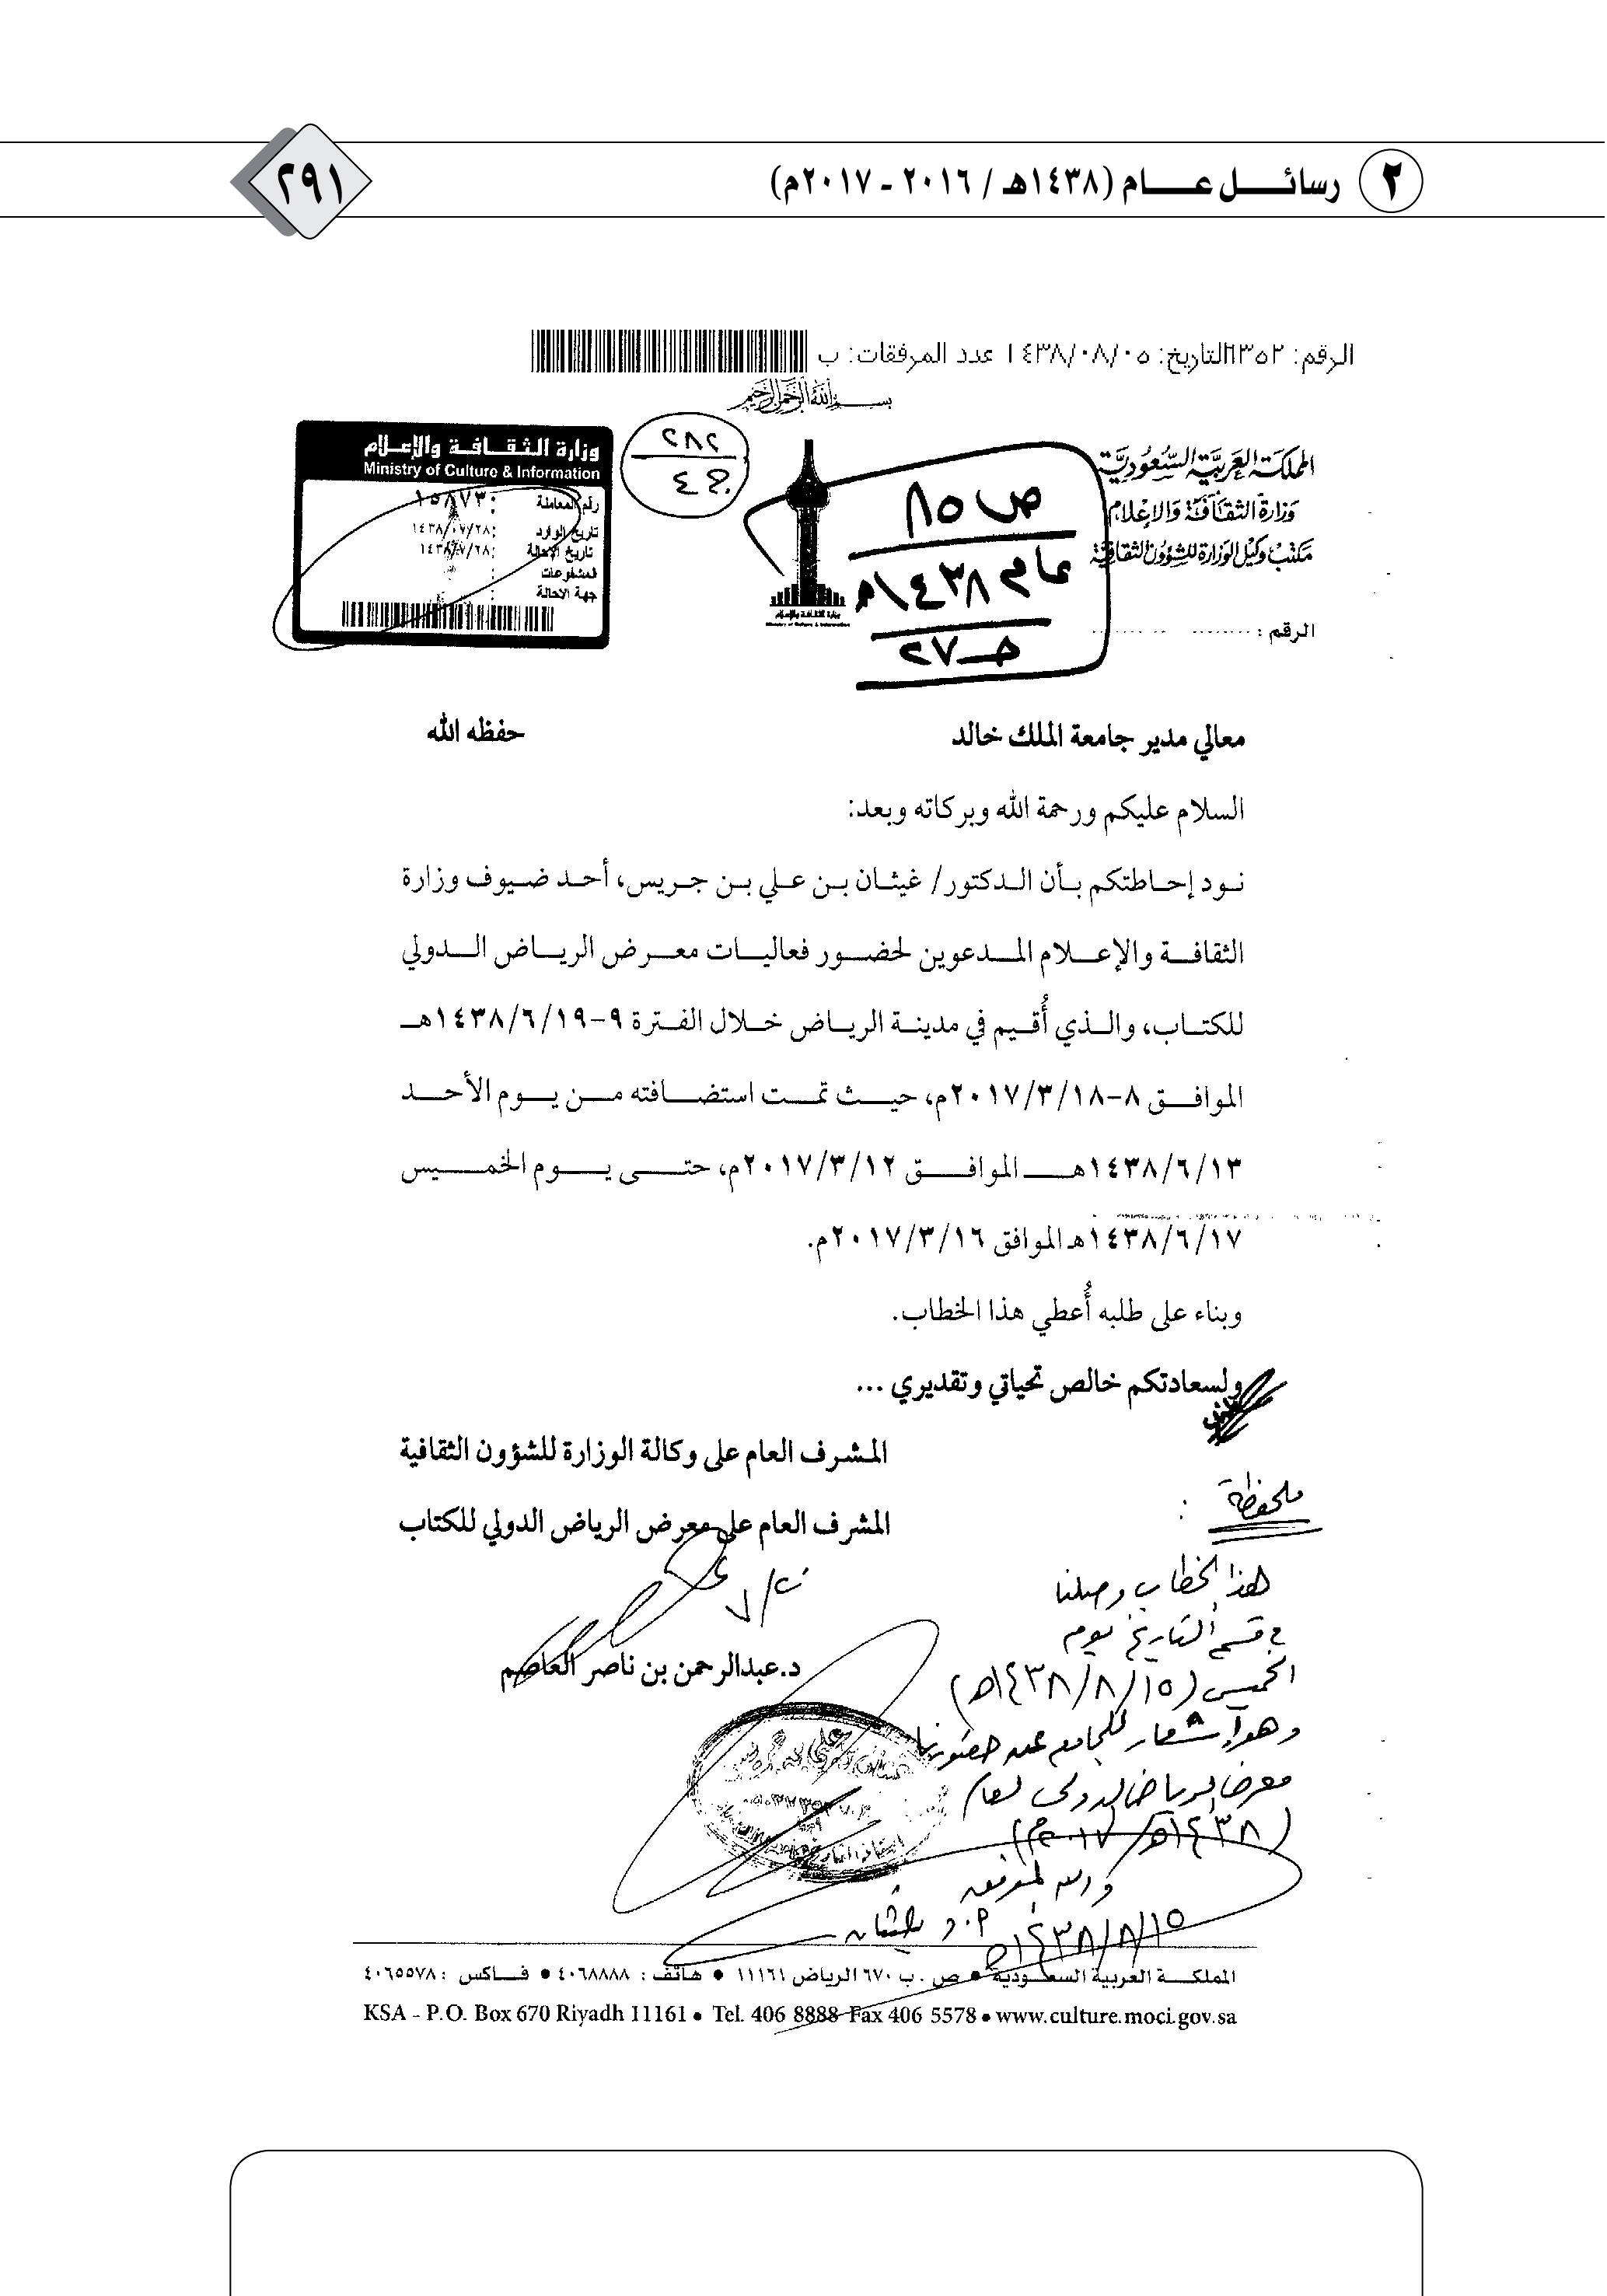 ٢ رسائــل عــام (١٤٣٨هـ / ٢٠١٦ - ٢٠١٧م)
٢٩١
الرقم: ٦٣٥٢ التاريخ: ١٤٣٨/٠٨/٠٥ عدد المرفقات: ب
بسم الله الرحمن الرحيم
المملكة العربية السعودية
وزارة الثقافة والإعلام
مكتب وكيل الوزارة للشؤون الثقافية
الرقم :
وزارة الثقافة والإعلام
Ministry of Culture & Information
ص ٨٥
عام ١٤٣٨هـ
جـ ٢٧
٢٨٢
وزارة الثقــافــة والإعــلام
Ministry of Culture & Information
رقم المعاملة : ١٥٨٧٣
تاريخ الوارد : ١٤٣٨/٠٧/٢٨
تاريخ الإحالة : ١٤٣٨/٧/٢٨
المشفوعات :
جهة الاحالة :
معالي مدير جامعة الملك خالد حفظه الله
السلام عليكم ورحمة الله وبركاته وبعد:
نود إحاطتكم بأن الدكتور/ غيثان بن علي بن جريس، أحد ضيوف وزارة
الثقافة والإعلام المدعوين لحضور فعاليات معرض الرياض الدولي
للكتاب، والذي أُقيم في مدينة الرياض خلال الفترة ٩-١٤٣٨/٦/١٩هـ
الموافق ٨-٢٠١٧/٣/١٨م، حيث تمت استضافته من يوم الأحد
١٤٣٨/٦/١٣هـ الموافق ٢٠١٧/٣/١٢م، حتى يوم الخميس
١٤٣٨/٦/١٧هـ الموافق ٢٠١٧/٣/١٦م.
وبناء على طلبه أُعطي هذا الخطاب.
ولسعادتكم خالص تحياتي وتقديري ...
المشرف العام على وكالة الوزارة للشؤون الثقافية
المشرف العام على معرض الرياض الدولي للكتاب
د.عبدالرحمن بن ناصر العاصم
ملحوظة :
هذا الخطاب وصلنا
في قسم التاريخ يوم
الخميس (١٤٣٨/٨/١٥هـ)
وهو إشعار للجامعة عن حضورنا
معرض الرياض الدولي لعام
(١٤٣٨هـ/٢٠١٧م)
والله الموفق
أ.د غيثان
١٤٣٨/٨/١٥هـ
المملكــة العربية السعــودية • ص . ب ٦٧٠ الرياض ١١١٦١ • هاتف : ٤٠٦٨٨٨٨ • فــاكس : ٤٠٦٥٥٧٨
KSA - P.O. Box 670 Riyadh 11161 • Tel. 406 8888 Fax 406 5578 • www.culture.moci.gov.sa